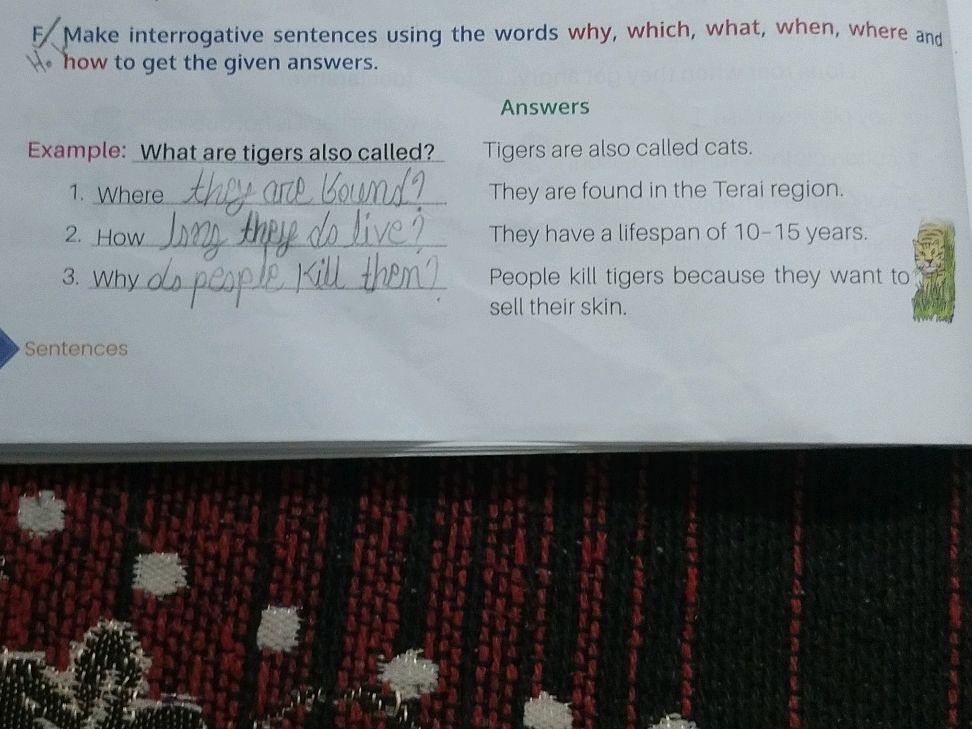 F/ Make interrogative sentences using the words why, which, what, when, where and
H. how to get the given answers.
Answers
Example: What are tigers also called? Tigers are also called cats.
1. Where they are bound? They are found in the Terai region.
2. How long they do live? They have a lifespan of 10–15 years.
3. Why do people kill them? People kill tigers because they want to
sell their skin.
Sentences